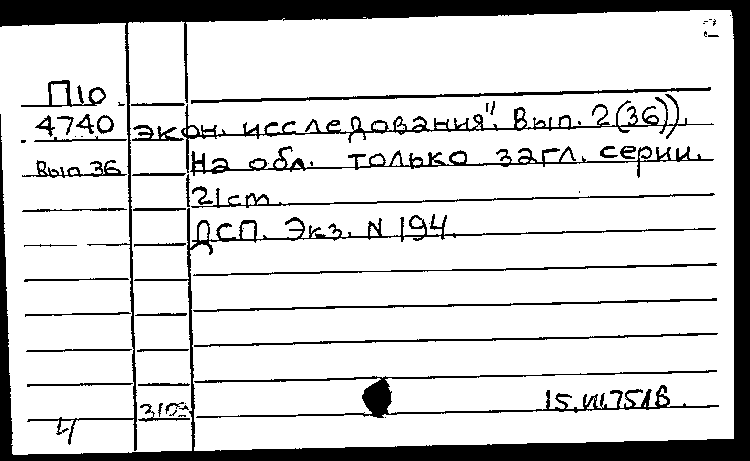 2
П10
4740 экон. исследования". Вып. 2(36)).
Вып 36 На обл. только загл. серии.
21 cm.
ДСП. Экз. N 194.
15.VII.75
4